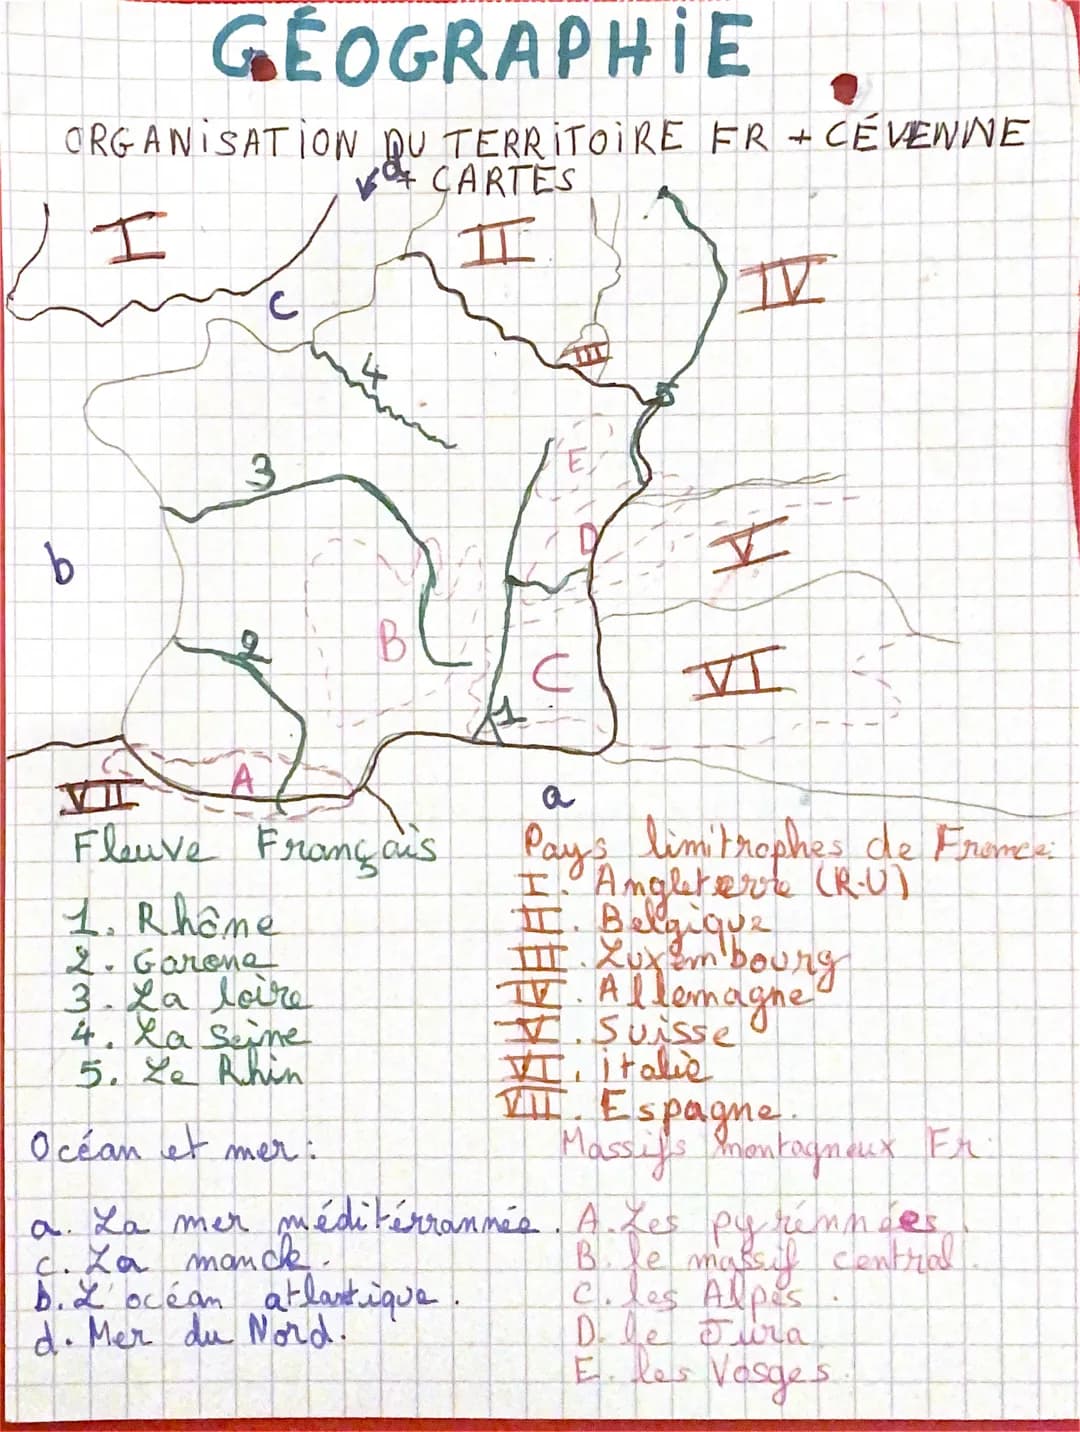 GÉOGRAPHIE
ORGANISATION DU TERRITOIRE FR + CÉVENNE
+ CARTES
d
I
II
IV
C
III
4
5
E
3
D
V
b
2
B
C
VI
1
A
VII
a
Fleuve Français
1. Rhône
2. Garone
3. La loire
4. La Seine
5. Le Rhin
Pays limitrophes de France:
I. Angleterre (R.U)
II. Belgique
III. Luxembourg
IV. Allemagne
V. Suisse
VI. italie
VII. Espagne.
Océan et mer:
a. La mer méditérrannée.
c. La manck.
b. L'océan atlantique.
d. Mer du Nord.
Massifs montagneux Fr:
A. Les pyrénnées.
B. le massif central.
C. les Alpes.
D. le Jura
E. les Vosges.